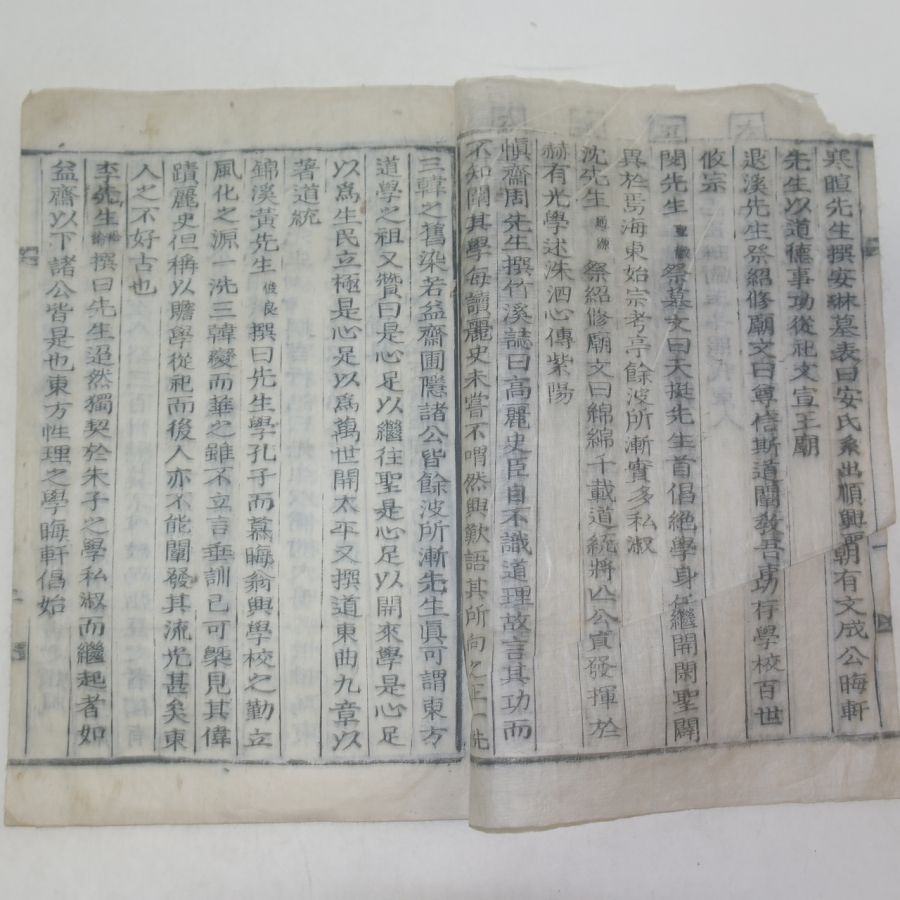 寒暄先生撰安琳墓表曰安氏系出順興麗朝有文成公晦軒
先生以道德事功從祀文宣王廟
退溪先生祭紹修廟文曰尊信斯道闡敎吾東功存學校百世
攸宗
閔先生聖徽祭墓文曰天挺先生首倡絶學身任繼開閑聖闢
異於焉海東始宗考亭餘波所漸實多私淑
沈先生 祭紹修廟文曰綿綿千載道統將亾公實發揮於
赫有光學述洙泗心傳紫陽
愼齋周先生撰竹溪誌曰高麗史臣自不識道理故言其功而
不知闡其學每讀麗史未嘗不喟然興歎語其所向之正一洗
三韓之舊染若益齋圃隱諸公皆餘波所漸先生眞可謂東方
道學之祖又贊曰是心足以繼往聖是心足以開來學是心足
以爲生民立極是心足以爲萬世開太平又撰道東曲九章以
著道統
錦溪黃先生俊良撰曰先生學孔子而慕晦翁興學校之勤立
風化之源一洗三韓變而華之雖不立言垂訓已可槩見其偉
蹟麗史但稱以贍學從祀而後人亦不能闡發其流光甚矣東
人之不好古也
李先生 撰曰先生迢然獨契於朱子之學私淑而繼起者如
益齋以下諸公皆是也東方性理之學晦軒倡始